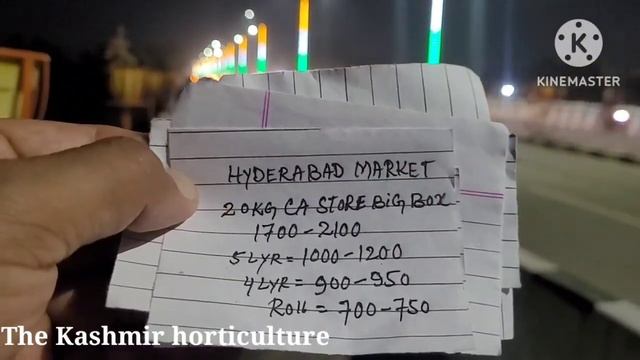 KINEMASTER
HYDERABAD MARKET
20KG CA STORE BIG BOX
1700-2100
5 LYR = 1000-1200
4 LYR = 900-950
Roll = 700-750
The Kashmir horticulture